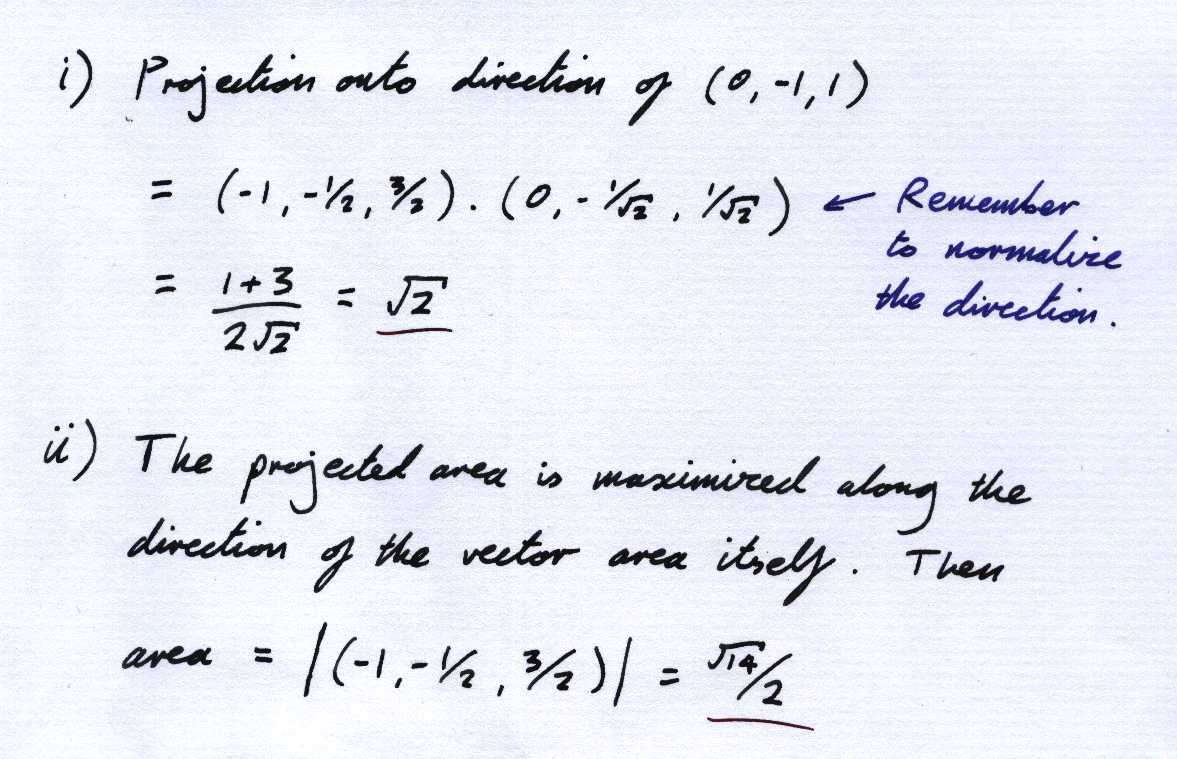 i) Projection onto direction of (0, -1, 1)
= (-1, -1/2, 3/2) . (0, -1/√2, 1/√2) ← Remember
to normalize
the direction.
= 1+3 / 2√2 = √2
ii) The projected area is maximized along the
direction of the vector area itself. Then
area = |(-1, -1/2, 3/2)| = √14/2